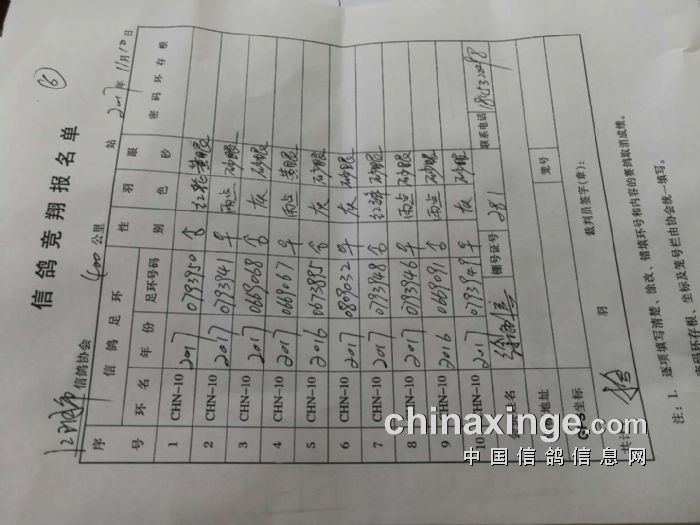 信鸽竞翔报名单
信鸽协会 400 公里 站 2017年11月10日
序号 信鸽足环 性别 羽色 眼砂 密码环存根
环名 年份 足环号码
1 CHN-10 2017 0793950 雨点 黄眼
2 CHN-10 2017 0793941 雨点 砂眼
3 CHN-10 2017 0669068 灰 砂眼
4 CHN-10 2017 0669067 雨点 黄眼
5 CHN-10 2016 0673895 灰 砂眼
6 CHN-10 2017 0809032 灰 砂眼
7 CHN-10 2017 0793948 砂眼
8 CHN-10 2017 0793946 雨点 砂眼
9 CHN-10 2016 0669091 雨点 砂眼
10 CHN-10 2017 0793949 灰 砂眼
名 棚号证号 281 联系电话
地址 笼号
坐标
共计 羽 裁判员签字(章):
注:1. 逐项填写清楚、涂改、错填环号和内容的赛鸽取消成绩。
密码环存根、坐标及笼号栏由协会统一填写。
chinaxinge.com
中国信鸽信息网